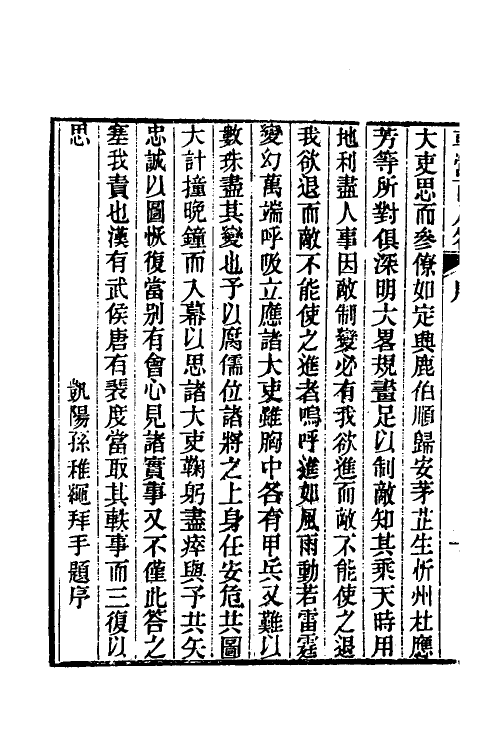 大吏思而參僚如定興鹿伯順歸安茅芷生忻州杜應
芳等所對俱深明大畧規畫足以制敵知其乘天時用
地利盡人事因敵制變必有我欲進而敵不能使之退
我欲退而敵不能使之進者嗚呼進如風雨動若雷霆
變幻萬端呼吸立應諸大吏雖胸中各有甲兵又難以
數珠盡其變也予以腐儒位諸將之上身任安危共圖
大計撞晚鐘而入幕以思諸大吏鞠躬盡瘁與予共矢
忠誠以圖恢復當别有會心見諸實事又不僅此答之
塞我責也漢有武侯唐有裴度當取其軼事而三復以
思
凱陽孫稚繩拜手題序